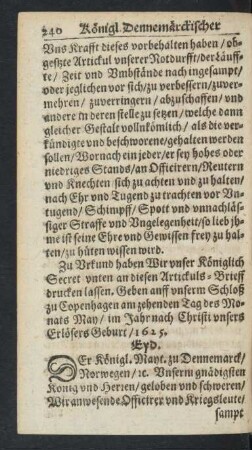 240 Königl. Dennemärckischer
Vns Krafft dieses vorbehalten haben / ob-
gesetzte Artickul vnserer Notdurfft / der Läuff-
te / Zeit vnd Vmbstände nach ingesampt /
oder jeglichen vor sich / zu verbessern / zuver-
mehren / zuverringern / abzuschaffen / vnd
andere in deren stelle zu setzen / welche dann
gleicher Gestalt vollnkömlich / als die ver-
kündigte vnd beschworene / gehalten werden
sollen / Wornach ein jeder / er sey hohes oder
niedriges Stands / an Officirern / Reutern
vnd Knechten sich zu achten vnd zu halten /
nach Ehr vnd Tugend zu trachten vor Vn-
tugend / Schimpff / Spott vnd vnnachläs-
siger Straffe vnd Vngelegenheit / so lieb jh-
me ist seine Ehre vnd Gewissen frey zu hal-
ten / zu hüten wissen wird.
Zu Vrkund haben Wir vnser Königlich
Secret vnten an diesen Artickuls-Brieff
drucken lassen. Geben auff vnserm Schloß
zu Copenhagen am zehenden Tag des Mo-
nats May / im Jahr nach Christi vnsers
Erlösers Geburt / 1625.
Eyd.
DEr Königl. Mayt. zu Dennemarck /
Norwegen / ꝛc. Vnserm gnädigsten
König vnd Herren / geloben vnd schweren /
Wir anwesende Officirer vnd Kriegsleute /
sampt